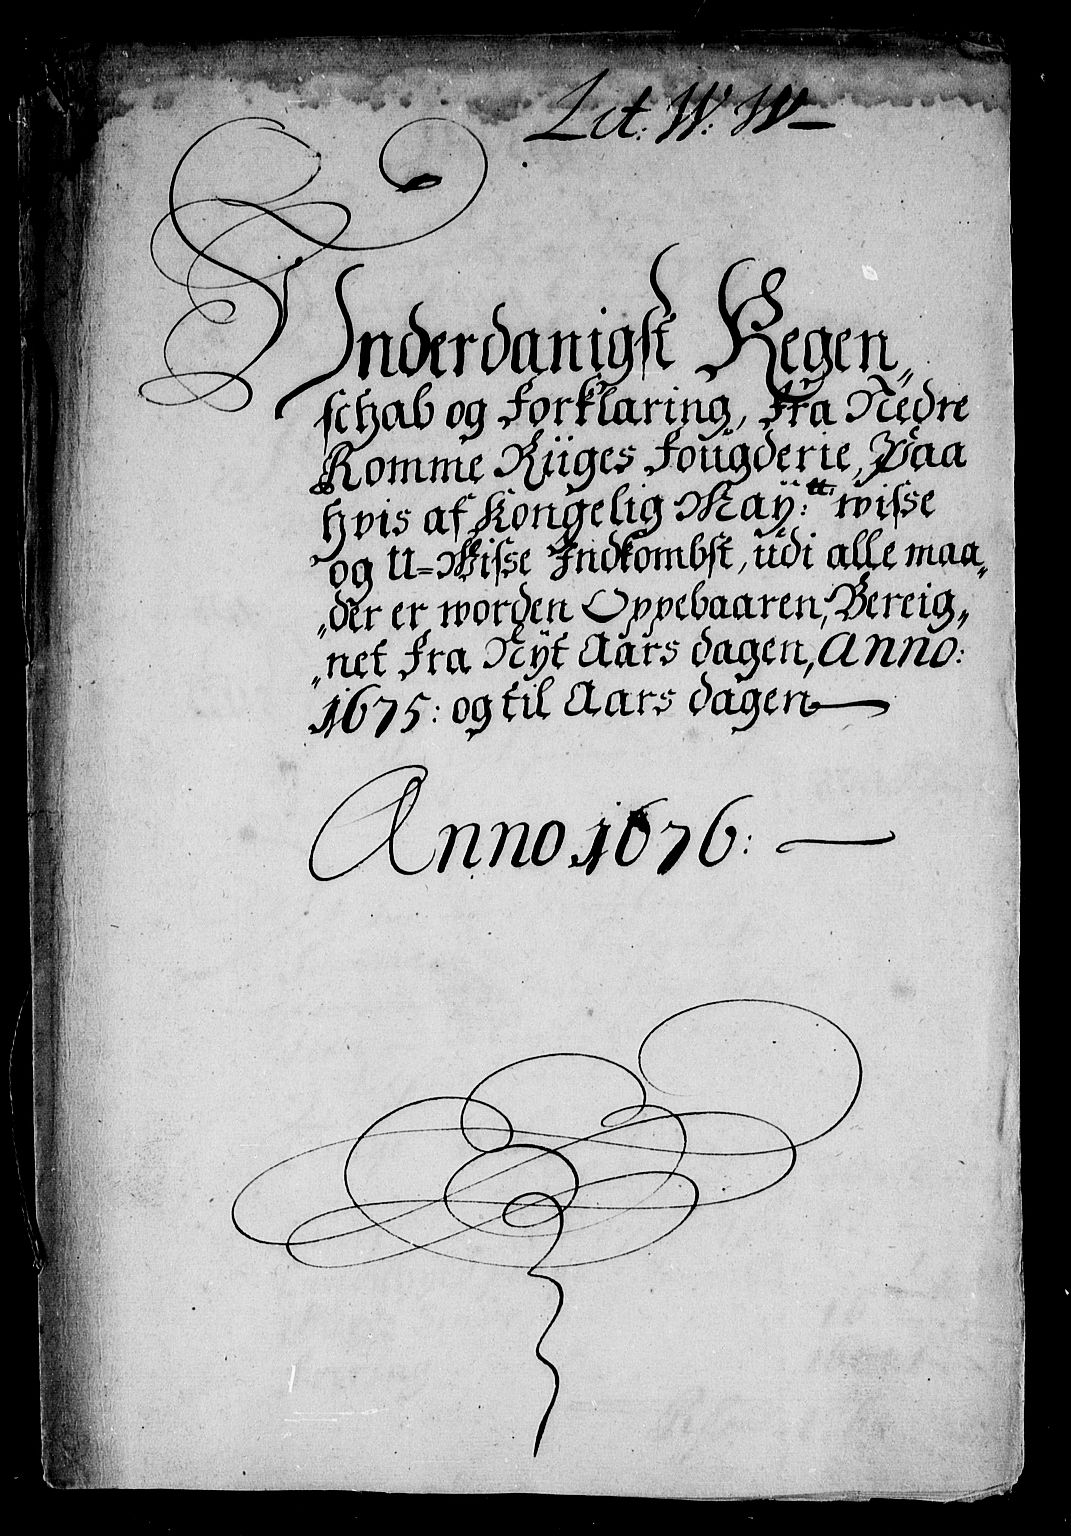 Lit: W: W
Underdanigst Regen„
schab og Forklaring, Fra Nedre
Romme Riiges Fougderie, Paa
hvis af Kongelig May:tt wisse
og U=Wisse Indkombst, udi alle maa„
„der er worden Oppebaaren, Bereig„
„net fra Nyt Aars dagen, Anno:
1675: og til Aars dagen
Anno 1676: